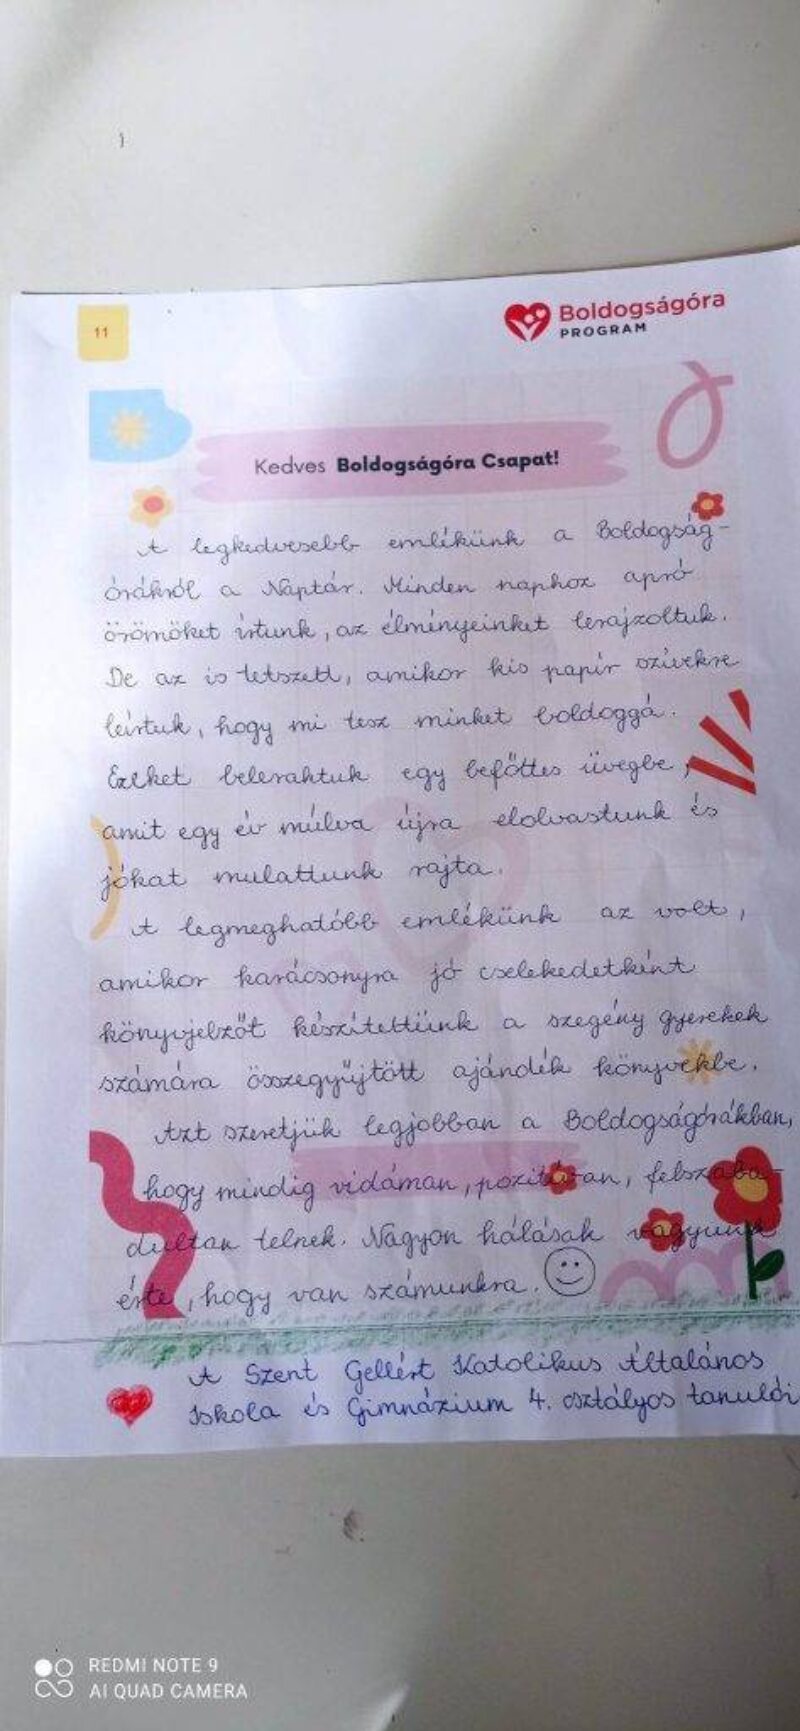 11
Boldogságóra
PROGRAM
Kedves Boldogságóra Csapat!
A legkedvesebb emlékünk a Boldogság-
órákról a Naptár. Minden naphoz apró
örömöket írtunk, az élményeinket lerajzoltuk.
De az is tetszett, amikor kis papír szívekre
leírtuk, hogy mi tesz minket boldoggá.
Ezeket beleraktuk egy befőttes üvegbe,
amit egy év múlva újra elolvastunk és
jókat mulattunk rajta.
A legmeghatóbb emlékünk az volt,
amikor karácsonyra jó cselekedetként
könyvjelzőt készítettünk a szegény gyerekek
számára összegyűjtött ajándék könyvekbe.
Azt szeretjük legjobban a Boldogságórákban,
hogy mindig vidáman, pozitívan, felszaba-
dultan telnek. Nagyon hálásak vagyunk
érte, hogy van számunkra.
A Szent Gellért Katolikus Általános
Iskola és Gimnázium 4. osztályos tanulói
REDMI NOTE 9
AI QUAD CAMERA